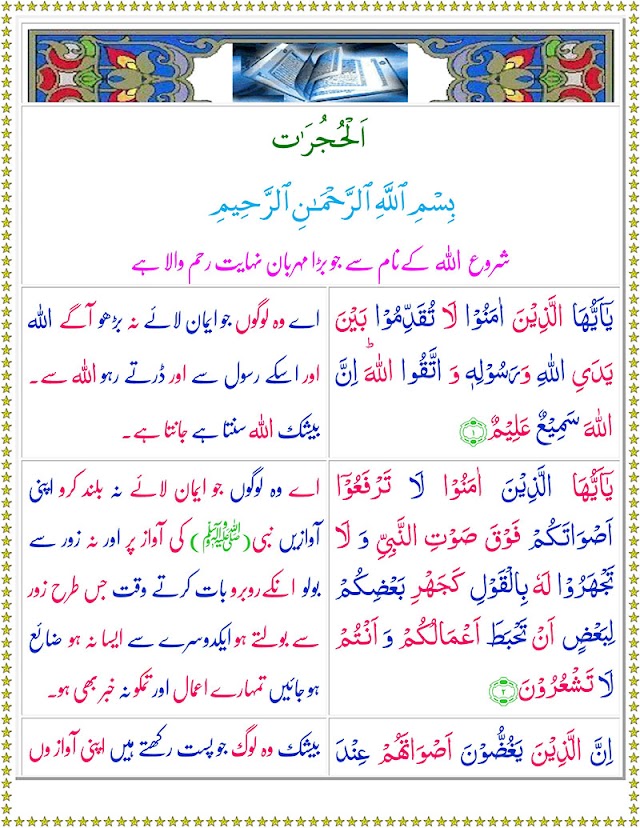 اَلْحُجُرٰت
بِسْمِ ٱللَّهِ ٱلرَّحْمَـٰنِ ٱلرَّحِيمِ
شروع اللہ کے نام سے جو بڑا مہربان نہایت رحم والا ہے
يٰٓاَيُّهَا الَّذِيْنَ اٰمَنُوْا لَا تُقَدِّمُوْا بَيْنَ
يَدَيِ اللّٰهِ وَرَسُوْلِهٖ وَ اتَّقُوا اللّٰهَ ؕ اِنَّ
اللّٰهَ سَمِيْعٌ عَلِيْمٌ ۱
اے وہ لوگوں جو ایمان لائے نہ بڑھو آگے اللہ
اور اسکے رسول سے اور ڈرتے رہو اللہ سے۔
بیشک اللہ سنتا ہے جانتا ہے۔
يٰٓاَيُّهَا الَّذِيْنَ اٰمَنُوْا لَا تَرْفَعُوْٓا
اَصْوَاتَكُمْ فَوْقَ صَوْتِ النَّبِيِّ وَ لَا
تَجْهَرُوْا لَهٗ بِالْقَوْلِ كَجَهْرِ بَعْضِكُمْ
لِبَعْضٍ اَنْ تَحْبَطَ اَعْمَالُكُمْ وَ اَنْتُمْ
لَا تَشْعُرُوْنَ ۲
اے وہ لوگوں جو ایمان لائے نہ بلند کرو اپنی
آوازیں نبی (ﷺ) کی آواز پر اور نہ زور سے
بولو انکے روبرو بات کرتے وقت جس طرح زور
سے بولتے ہو ایکدوسرے سے ایسا نہ ہو ضائع
ہو جائیں تمہارے اعمال اور تمکو نہ خبر بھی ہو۔
اِنَّ الَّذِيْنَ يَغُضُّوْنَ اَصْوَاتَهُمْ عِنْدَ
بیشک وہ لوگ جو پست رکھتے ہیں اپنی آواز وں